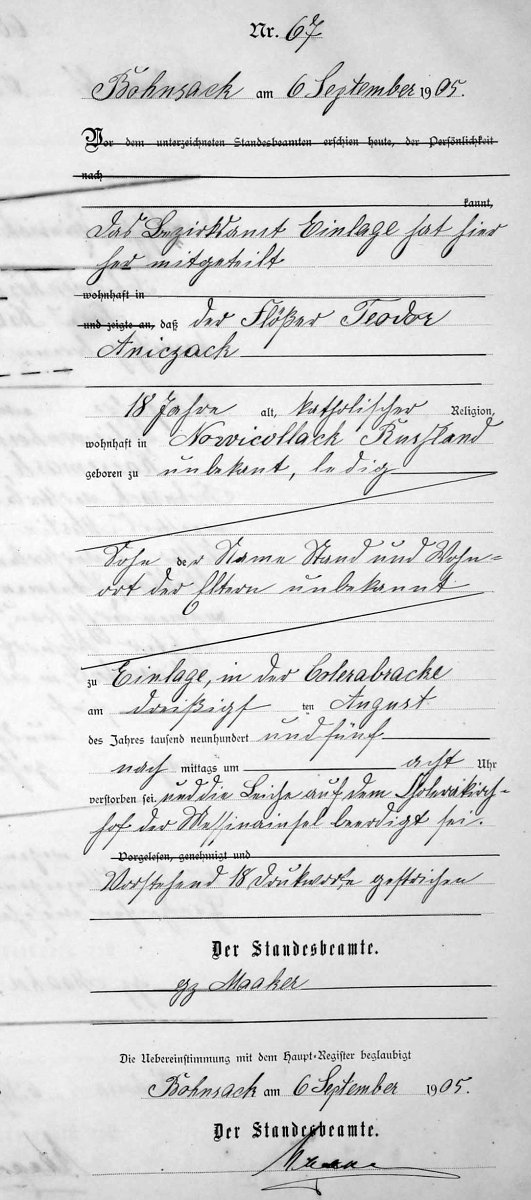 Nr. 67
Bohnsack am 6 September 1905.
Vor dem unterzeichneten Standesbeamten erschien heute, der Persönlichkeit
nach
kannt,
Das Bezirksamt Einlage hat hier
her mitgeteilt
wohnhaft in
und zeigte an, daß der Flößer Teodor
Aniczack
18 Jahre alt, katholischer Religion,
wohnhaft in Nowicollack Rußland
geboren zu unbekant, ledig
Sohn der Name Stand und Wohn=
ort der Eltern unbekannt
zu Einlage, in der Colerabracke
am dreißigs ten August
des Jahres tausend neunhundert und fünf
nach mittags um acht Uhr
verstorben sei und die Leiche auf dem Cholerakirch=
hof der Messinainsel beerdigt sei.
Vorgelesen, genehmigt und
Vorstehend 18 Drukworte gestrichen
Der Standesbeamte.
gz Maaker
Die Uebereinstimmung mit dem Haupt-Register beglaubigt
Bohnsack am 6 September 1905.
Der Standesbeamte.